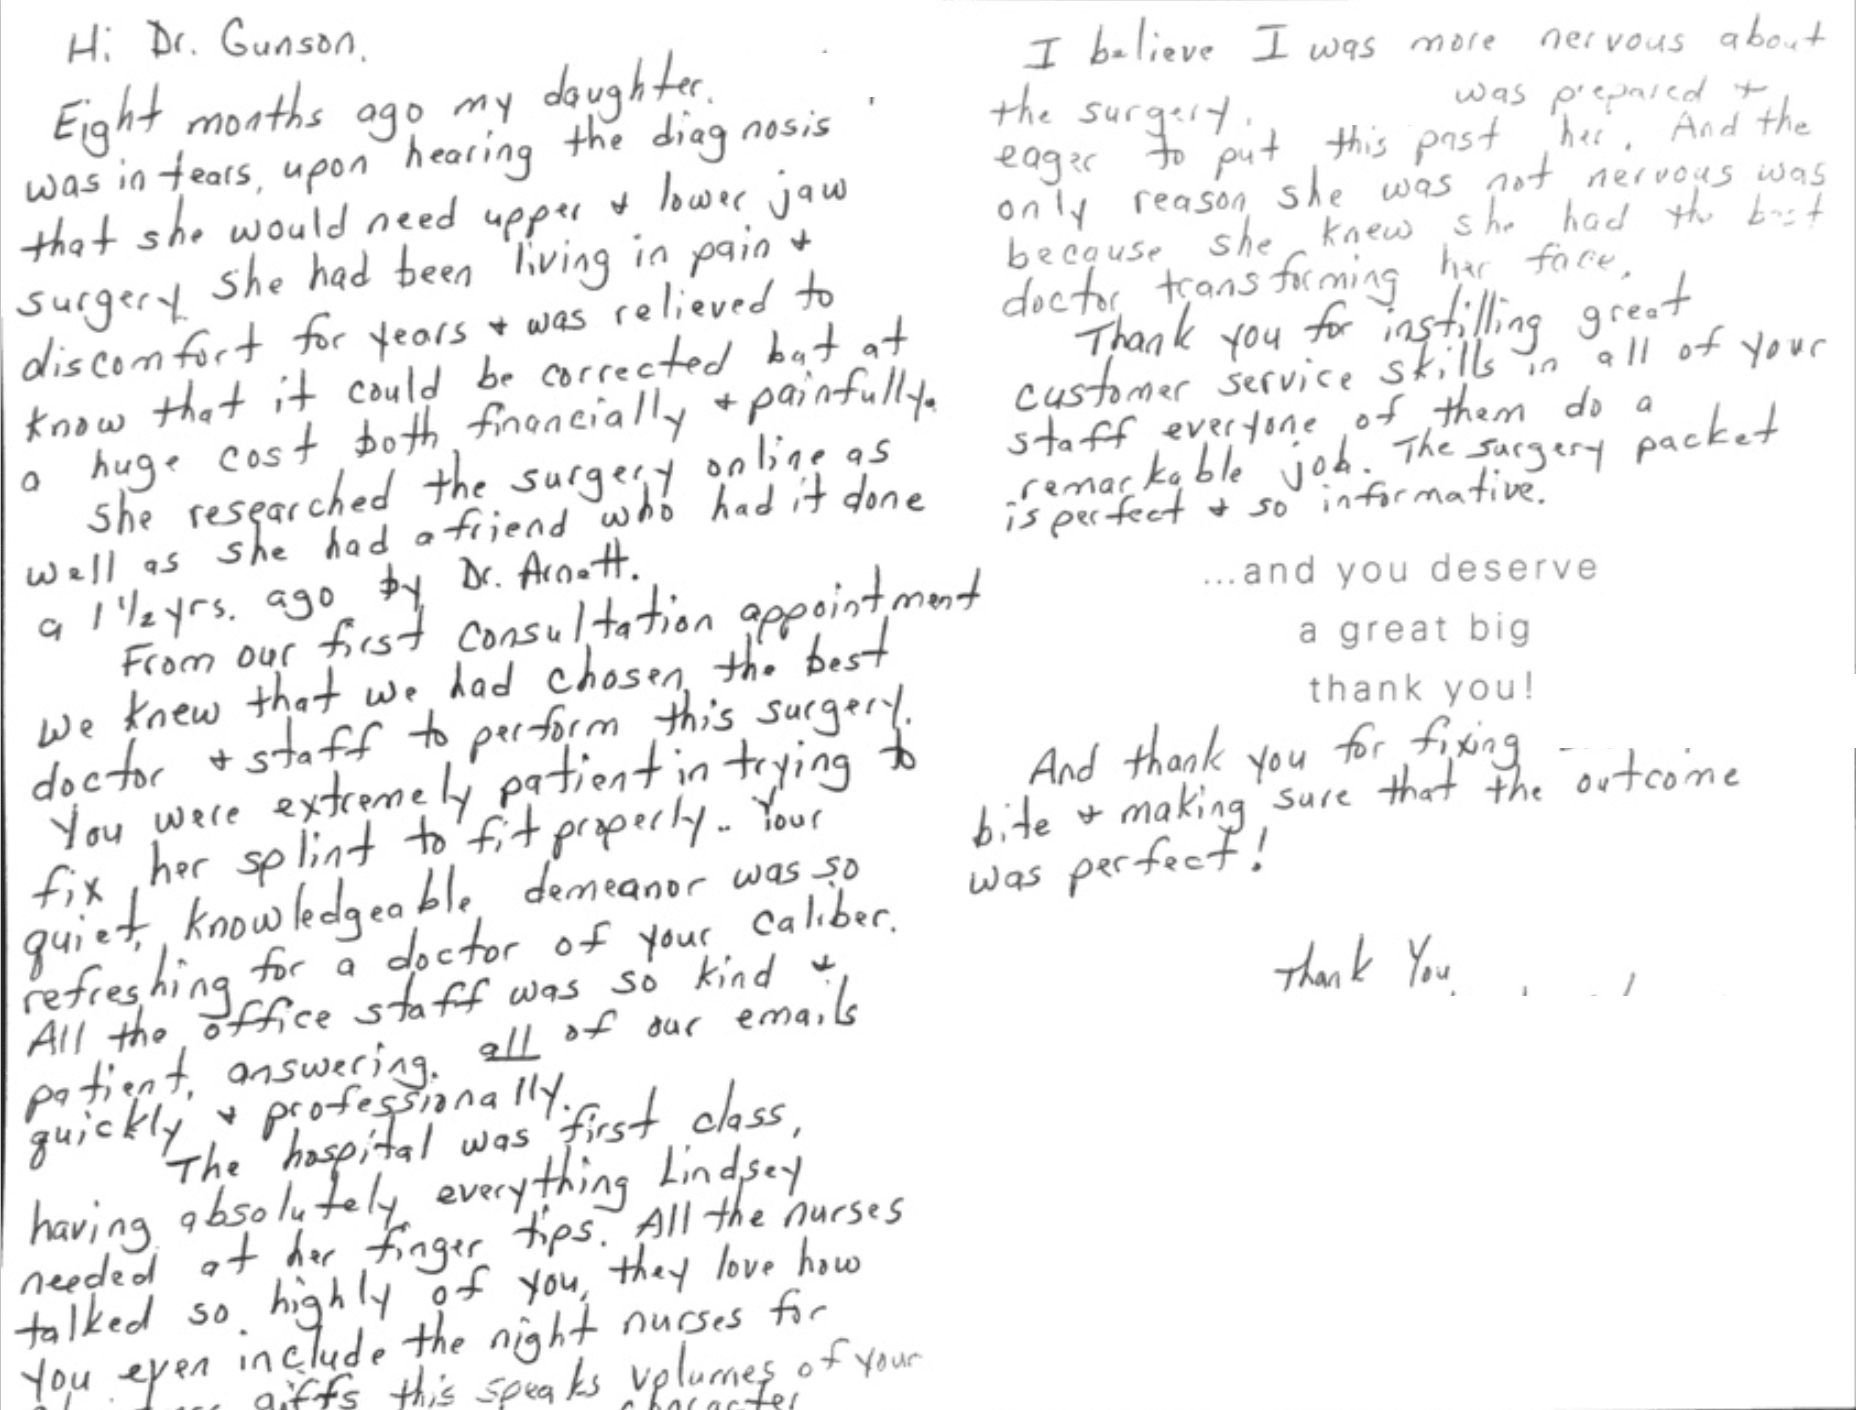 Hi Dr. Gunson.
Eight months ago my daughter.
was in tears, upon hearing the diagnosis
that she would need upper & lower jaw
surgery. She had been living in pain &
discomfort for years & was relieved to
know that it could be corrected but at
a huge cost both financially & painfully.
She researched the surgery online as
well as she had a friend who had it done
a 1 1/2 yrs. ago by Dr. Arnett.
From our first consultation appointment
we knew that we had chosen the best
doctor & staff to perform this surgery.
You were extremely patient in trying to
fix her splint to fit properly.. Your
quiet, knowledgeable demeanor was so
refreshing for a doctor of your caliber.
All the office staff was so kind &
patient, answering all of our emails
quickly & professionally.
The hospital was first class,
having absolutely everything Lindsey
needed at her finger tips. All the nurses
talked so highly of you, they love how
you even include the night nurses for
gifts this speaks volumes of your
character
I believe I was more nervous about
the surgery. was prepared &
eager to put this past her. And the
only reason she was not nervous was
because she knew she had the best
doctor transforming her face.
Thank you for instilling great
customer service skills in all of your
staff everyone of them do a
remarkable job. The surgery packet
is perfect & so informative.
...and you deserve
a great big
thank you!
And thank you for fixing
bite & making sure that the outcome
was perfect!
Thank You